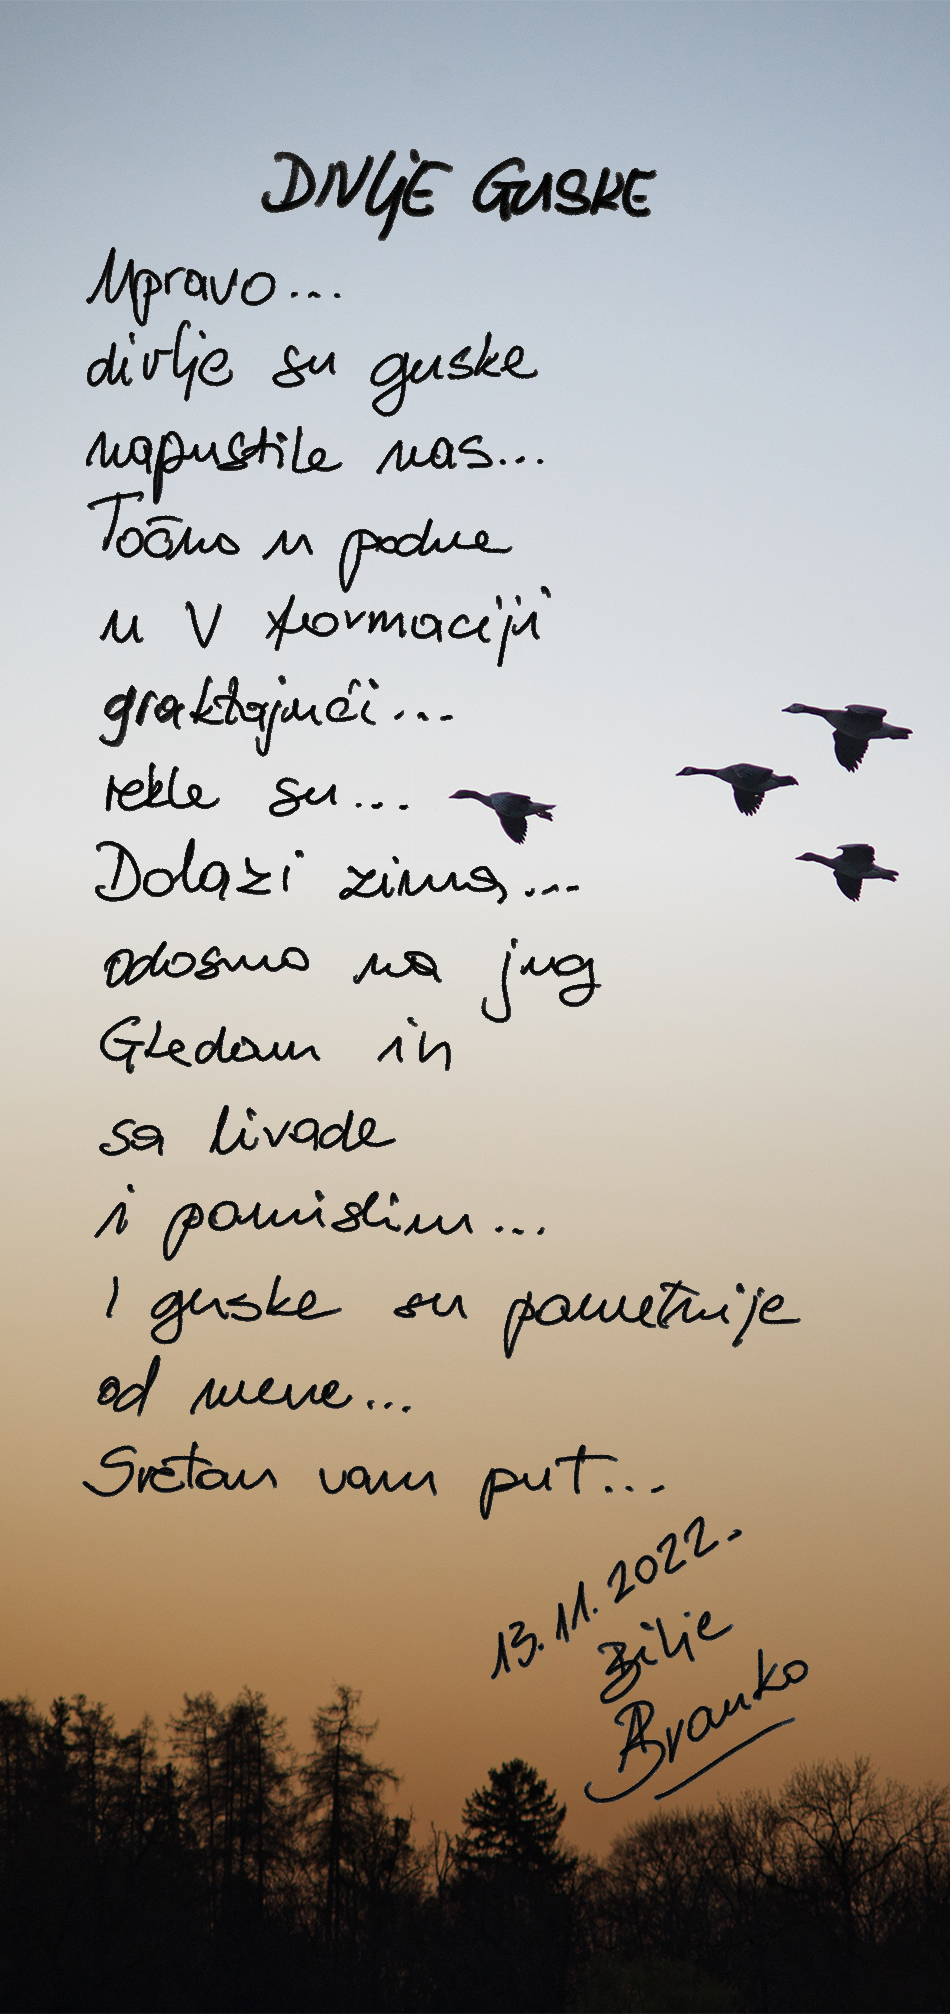 DIVLJE GUSKE
Upravo...
divlje su guske
napustile nas...
Točno u podne
u V formaciji
graktajući...
rekle su...
Dolazi zima,...
odosmo na jug
Gledam ih
sa livade
i pomislim...
I guske su pametnije
od mene...
Sretan vam put...
13.11.2022.
Bilje
Branko